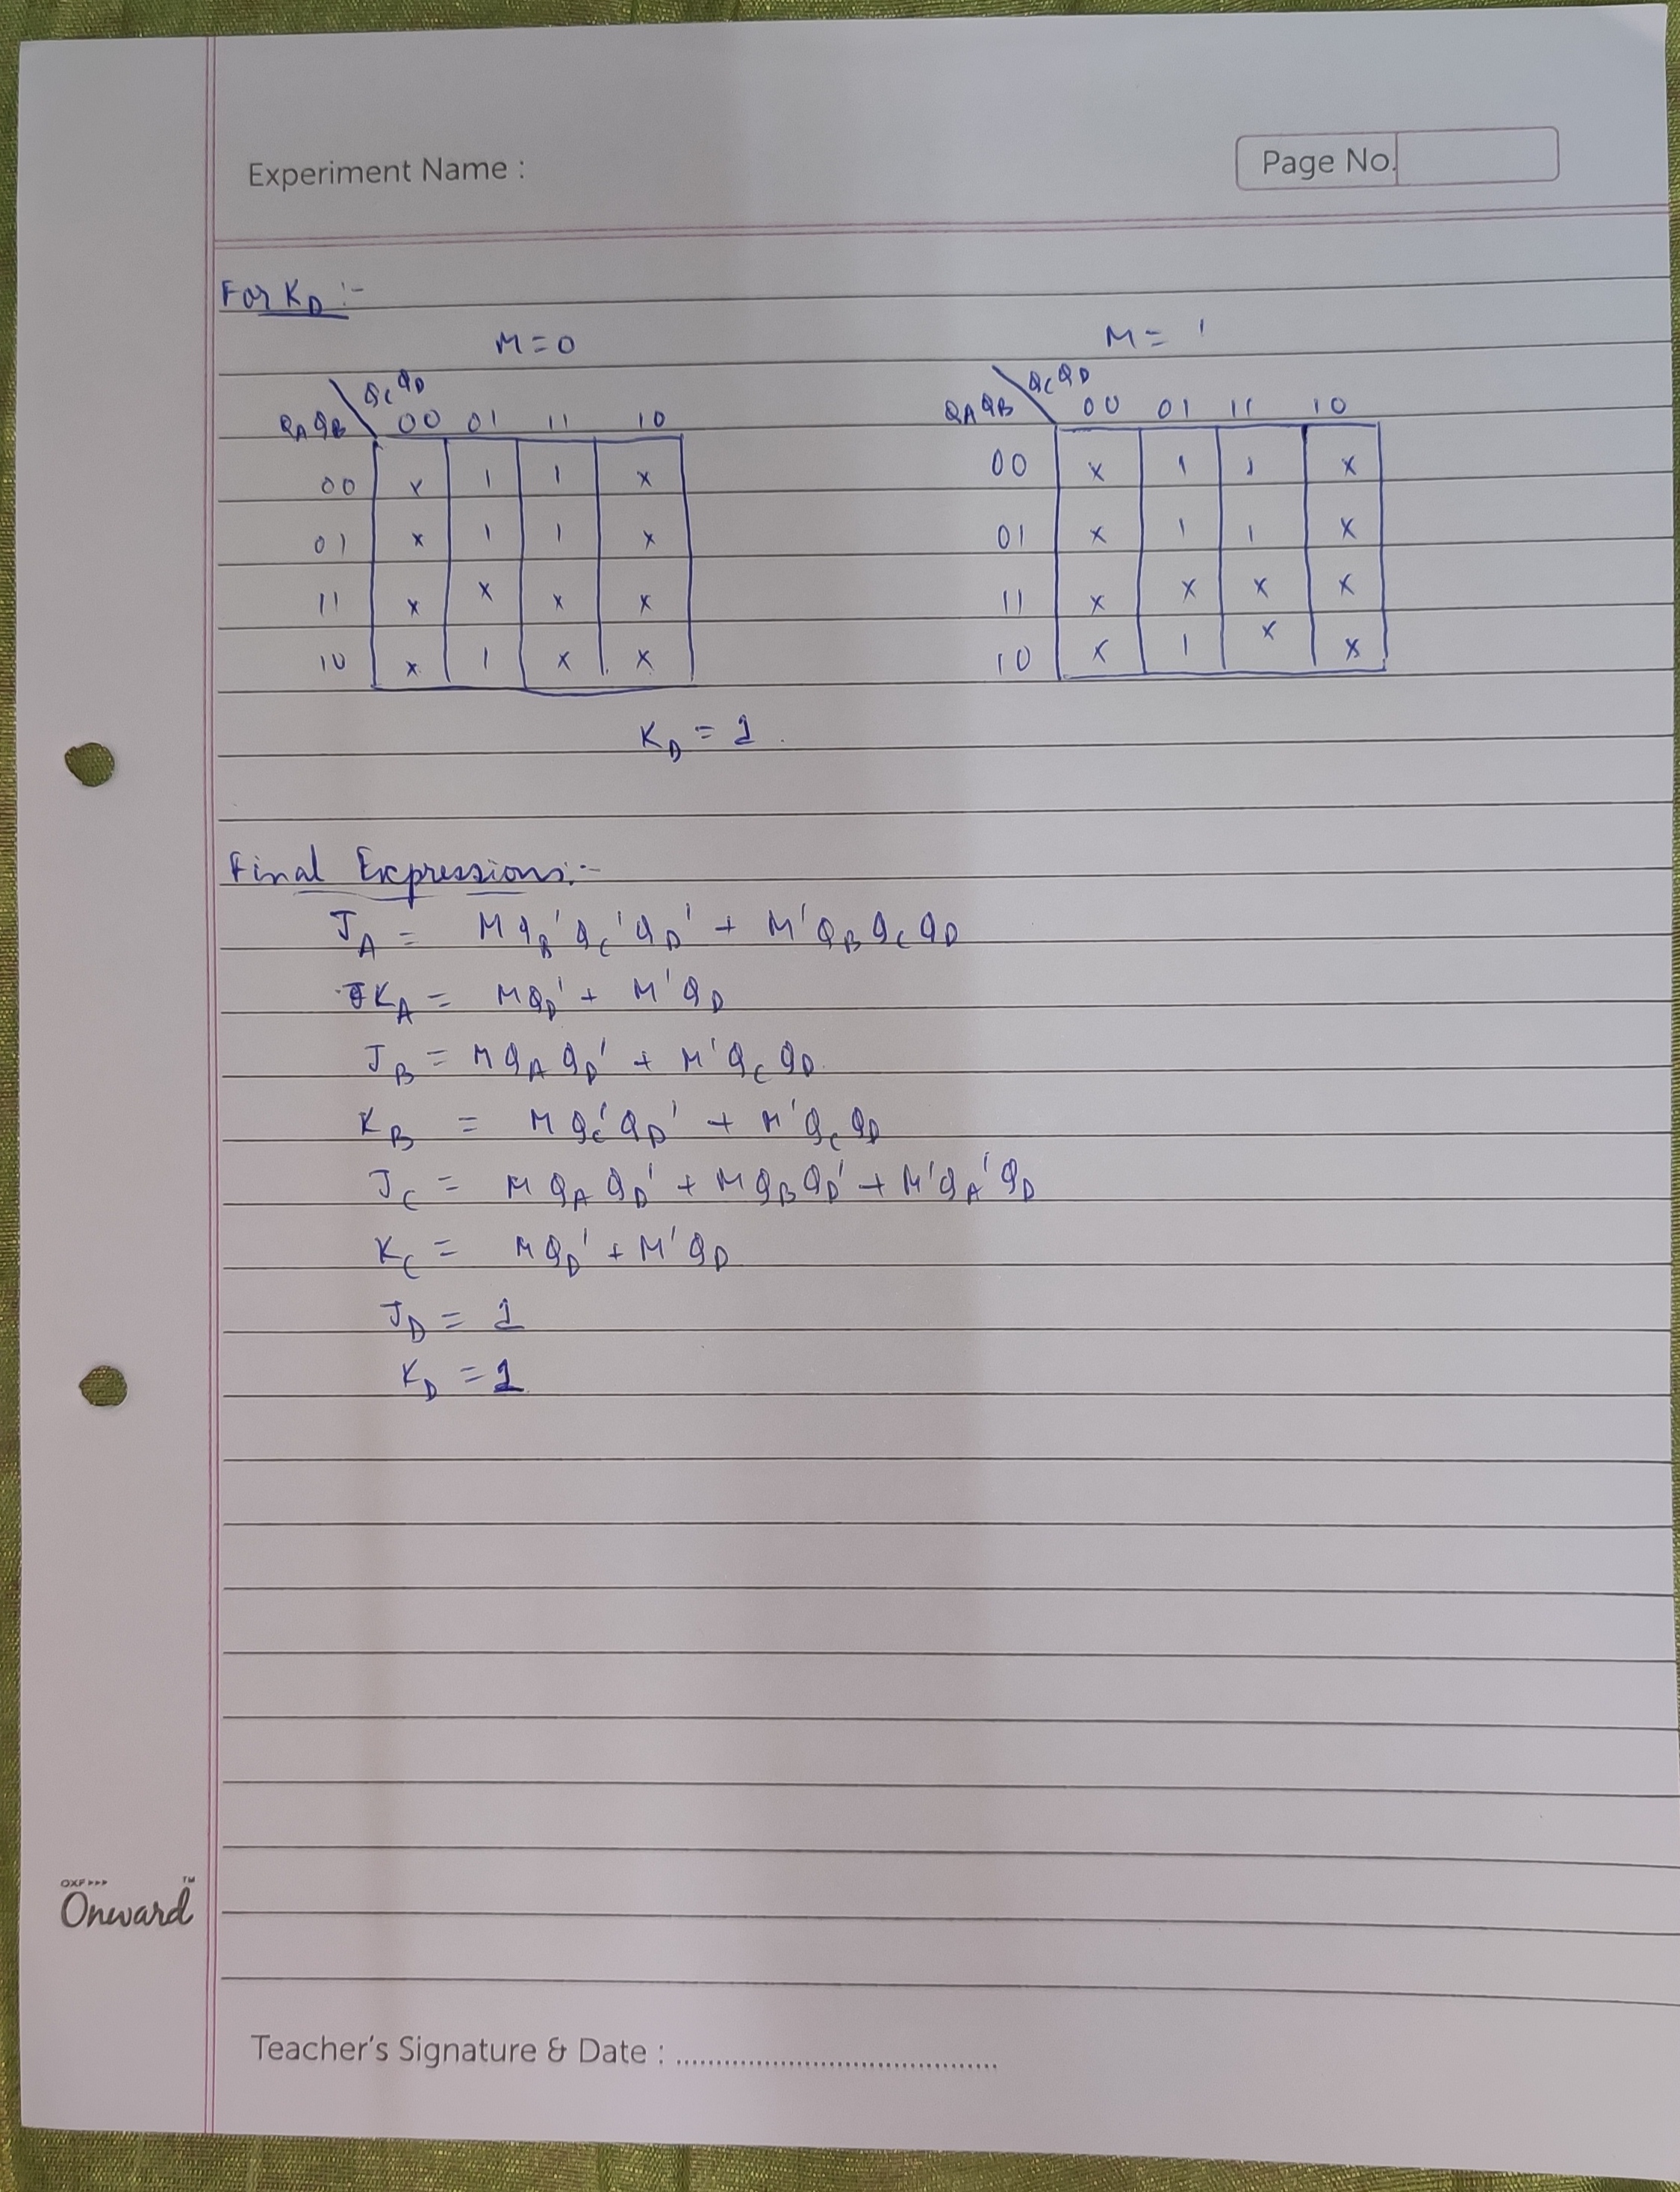 Experiment Name :
Page No.
For K_D :-
M=0
M = 1
Q_C Q_D
Q_A Q_B 00 01 11 10
00 x 1 1 x
01 x 1 1 x
11 x x x x
10 x 1 x x
Q_C Q_D
Q_A Q_B 00 01 11 10
00 x 1 1 x
01 x 1 1 x
11 x x x x
10 x 1 x x
K_D = 1.
Final Expressions:-
J_A = M Q_B' Q_C' Q_D' + M' Q_B Q_C Q_D
K_A = M Q_D' + M' Q_D
J_B = M Q_A Q_D' + M' Q_C Q_D
K_B = M Q_C' Q_D' + M' Q_C Q_D
J_C = M Q_A Q_D' + M Q_B Q_D' + M' Q_A' Q_D
K_C = M Q_D' + M' Q_D
J_D = 1
K_D = 1
OXF ▸▸▸ TM
Onward
Teacher's Signature & Date : ........................................